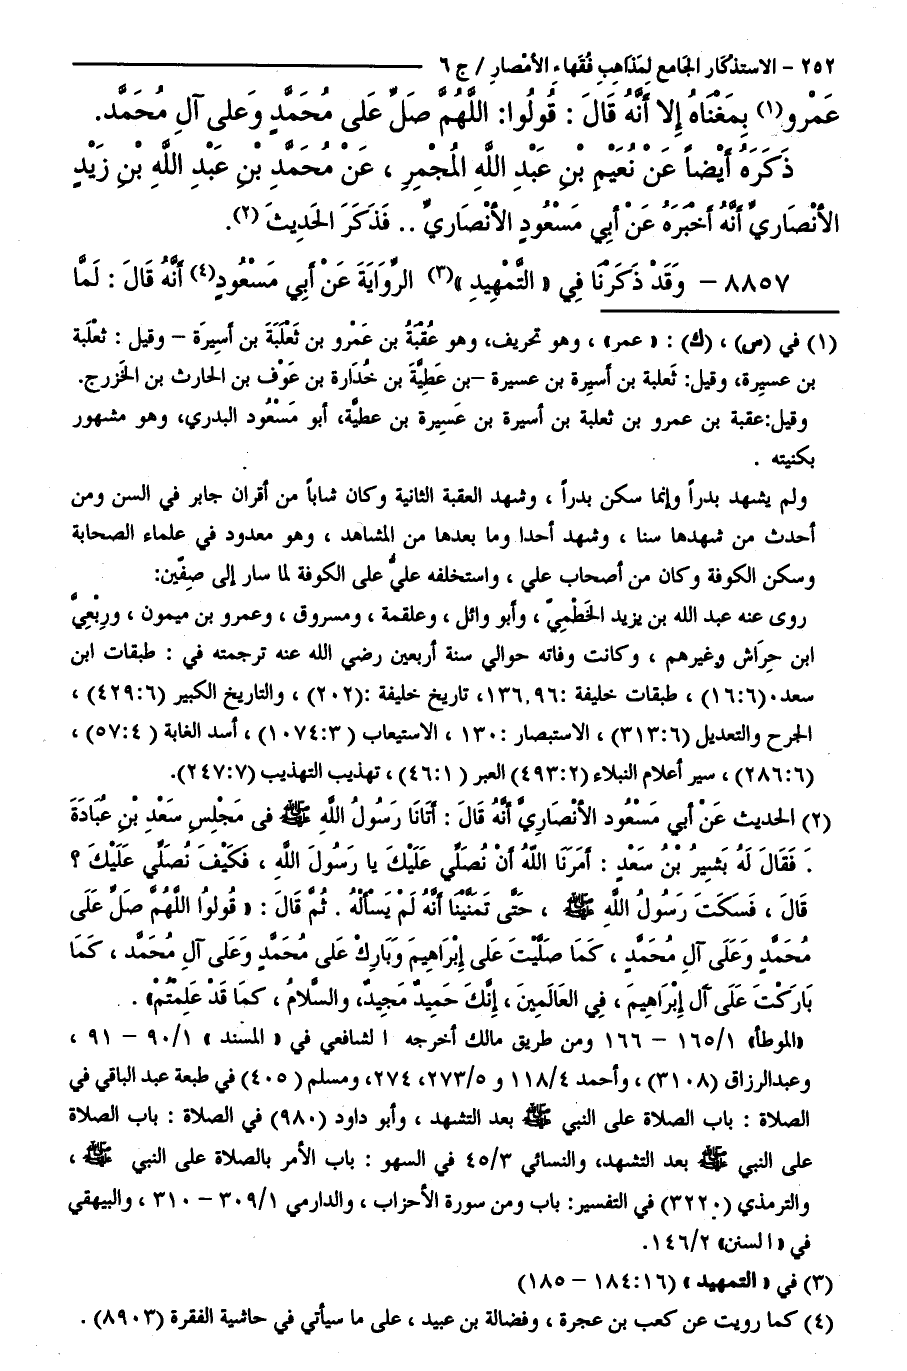 ٢٥٢ – الاستذْكَار الجَامع لِمَذَاهِبِ فُقَهَاء الأمْصَارِ / ج ٦
عَمْرو(١) بِمَعْنَاهُ إِلا أَنَّهُ قَالَ : قُولُوا: اللَّهُمَّ صَلِّ عَلَى مُحَمَّدٍ وَعَلى آلِ مُحَمَّد.
ذَكَرَهُ أَيْضاً عَنْ نُعَيْمِ بْنِ عَبْدِ اللَّهِ المُجْمِرِ ، عَنْ مُحمَدِ بْنِ عَبْدِ اللَّهِ بْنِ زَيْدٍ
الأنْصَارِيِّ أَنَّهُ أخْبَرَهُ عَنْ أبِي مَسْعُودٍ الأنْصَارِيِّ .. فَذَكَرَ الحَدِيثَ (٢).
٨٨٥٧ – وَقَدْ ذَكَرْنَا فِي « التَّمْهِيدِ »(٣) الرِّوَايَةَ عَنْ أبِي مَسْعُودٍ(٤) أَنَّهُ قَالَ : لَمَّا
(١) في (س) ، (ك) : « عمر» ، وهو تحريف، وهو عُقْبَةُ بن عَمْرو بن ثَعْلَبَةَ بن أسِيرَة – وقيل : ثعلبة
بن عسيرة، وقيل: ثَعلبة بن أسِيرة بن عسيرة –بن عَطِيَّةَ بن خُدَارة بن عَوْف بن الحارث بن الخَزرج.
وقيل:عقبة بن عمرو بن ثعلبة بن أسيرة بن عَسِيرة بن عطيَّة، أبو مَسْعُود البدري، وهو مشهور
بكنيته .
ولم يشهد بدراً وإنما سكن بدراً ، وشهد العقبة الثانية وكان شاباً من أقران جابر في السن ومن
أحدث من شهدها سنا ، وشهد أحدا وما بعدها من المشاهد ، وهو معدود في علماء الصحابة
وسكن الكوفة وكان من أصحاب علي ، واستخلفه عليٌّ على الكوفة لما سار إلى صِفّين:
روى عنه عبد الله بن يزيد الخَطْمِيّ ، وأبو وائل ، وعلقمة ، ومسروق ، وعمرو بن ميمون ، ورِبْعِيُّ
ابن حِرَاش وغيرهم ، وكانت وفاته حوالي سنة أربعين رضي الله عنه ترجمته في : طبقات ابن
سعد(١٦:٦) ، طبقات خليفة :١٣٦,٩٦، تاريخ خليفة :(٢٠٢) ، والتاريخ الكبير (٤٢٩:٦) ،
الجرح والتعديل (٣١٣:٦) ، الاستبصار :١٣٠ ، الاستيعاب (١٠٧٤:٣) ، أسد الغابة (٥٧:٤) ،
(٢٨٦:٦) ، سير أعلام النبلاء (٤٩٣:٢) العبر (٤٦:١) ، تهذيب التهذيب (٢٤٧:٧).
(٢) الحديث عَنْ أبي مَسْعُود الأنْصَارِيِّ أَنَّهُ قَالَ : أَتَانَا رَسُولُ اللَّهِ ﷺ فى مَجْلِسِ سَعْدِ بْنِ عُبَادَةَ
. فَقَالَ لَهُ بَشِيرُ بْنُ سَعْدٍ : أمَرَنَا اللَّهُ أنْ نُصَلِّي عَلَيْكَ يا رَسُولَ اللَّهِ ، فَكَيْفَ نُصَلِّي عَلَيْكَ ؟
قَالَ ، فَسَكَتَ رَسُولُ اللَّهِ ﷺ ، حَتَّى تَمَنَّيْنَا أَنَّهُ لَمْ يَسألْهُ . ثُمَّ قَالَ : « قُولُوا اللَّهُمَّ صَلِّ عَلَى
مُحَمَّدٍ وَعَلَى آلِ مُحَمَّدٍ ، كَمَا صَلَّيْتَ عَلى إِبْرَاهِيمَ وَبَارِكْ عَلى مُحَمَّدٍ وَعَلى آلِ مُحَمَّد ، كَمَا
بَارَكْتَ عَلَى آلِ إِبْرَاهِيمَ ، فِي العَالَمِينَ ، إِنَّكَ حَمِيدٌ مَجِيدٌ، والسَّلامُ ، كَمَا قَدْ عَلِمْتُمْ» .
«الموطأ» ١٦٥/١ – ١٦٦ ومن طريق مالك أخرجه الشافعي في « المسند » ٩٠/١ – ٩١ ،
وعبدالرزاق (٣١٠٨) ، وأحمد ١١٨/٤ و ٢٧٣/٥، ٢٧٤، ومسلم ( ٤٠٥) في طبعة عبد الباقي في
الصلاة : باب الصلاة على النبي ﷺ بعد التشهد ، وأبو داود (٩٨٠) في الصلاة : باب الصلاة
على النبي ﷺ بعد التشهد، والنسائي ٤٥/٣ في السهو : باب الأمر بالصلاة على النبي ﷺ ،
والترمذي (٣٢٢٠) في التفسير: باب ومن سورة الأحزاب ، والدارمي ٣٠٩/١ – ٣١٠ ، والبيهقي
في « السنن» ١٤٦/٢.
(٣) في « التمهيد » (١٨٤:١٦ – ١٨٥)
(٤) كما رويت عن كعب بن عجرة ، وفضالة بن عبيد ، على ما سيأتي في حاشية الفقرة (٨٩٠٣) .